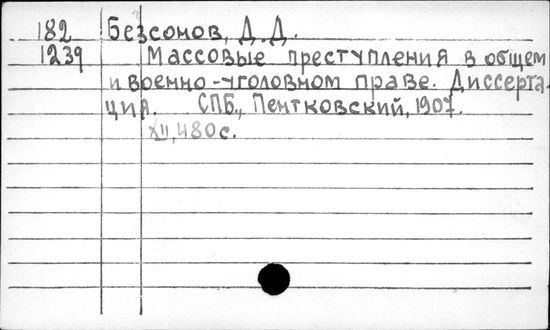 182 Безсонов, Д.Д.
1239 Массовые преступления в общем
и военно-уголовном праве. Диссерта-
ция. СПБ., Пентковский, 1907.
XII, 480с.